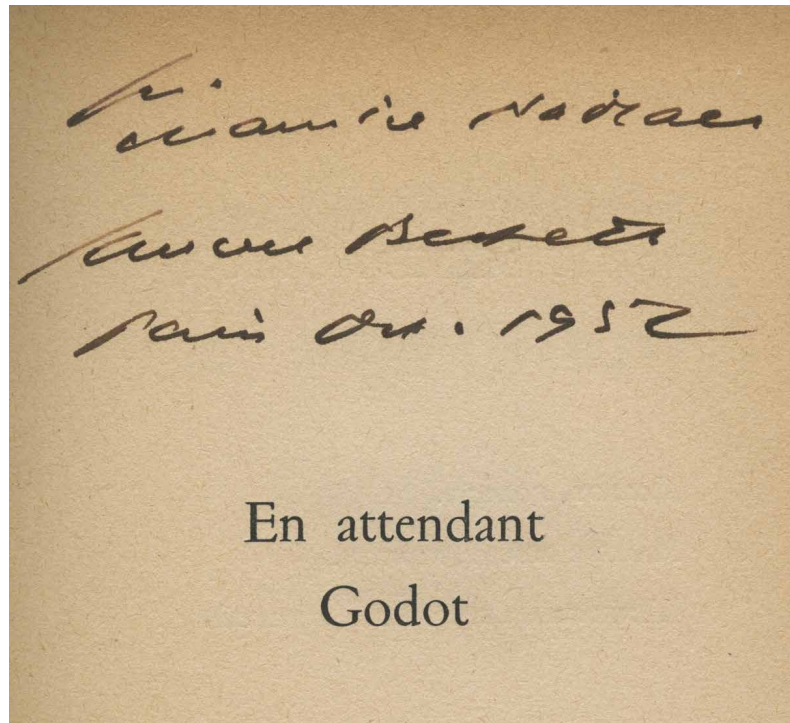 pr.
Maurice Nadeau
Samuel Beckett
Paris Oct. 1952
En attendant
Godot